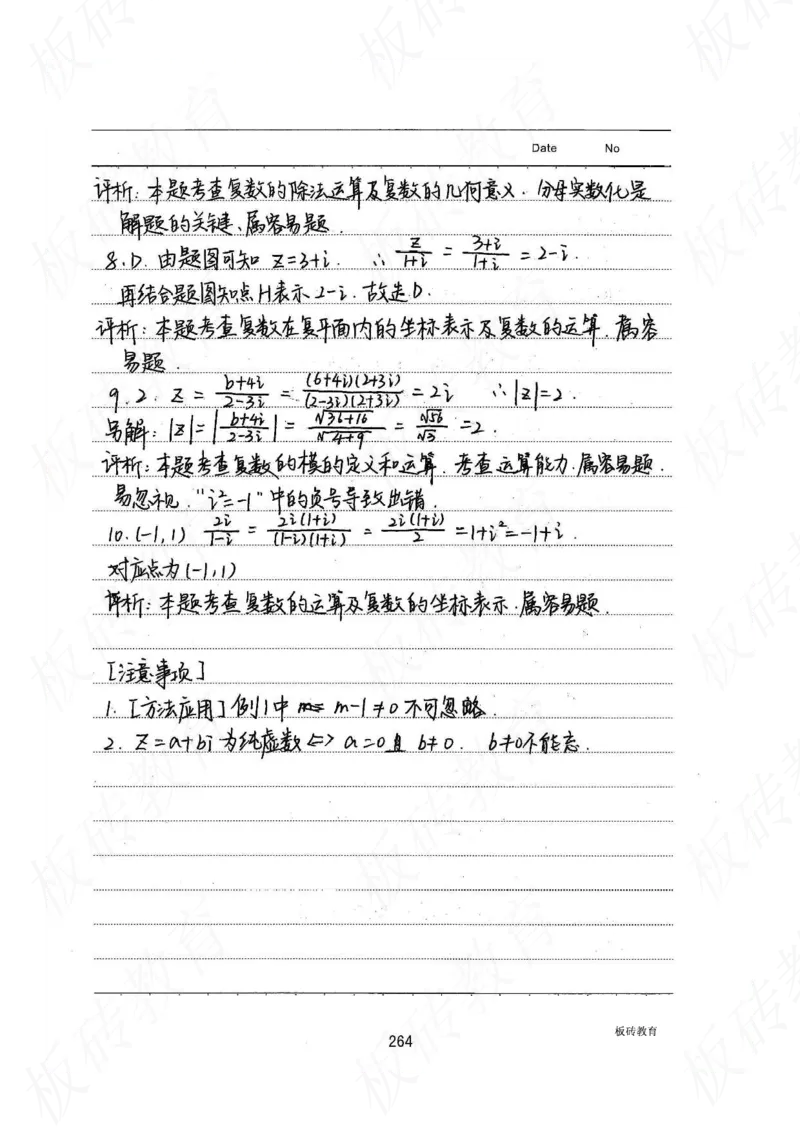 Date No
评析：本题考查复数的除法运算及复数的几何意义．分母实数化是
解题的关键、属容易题．
8.D. 由题图可知 z=3+i. ∴ z/(1+i) = (3+i)/(1+i) = 2-i.
再结合题图知点H表示 2-i. 故选D.
评析：本题考查复数在复平面内的坐标表示及复数的运算．属容
易题．
9.2. z = (6+4i)/(2-3i) = (6+4i)(2+3i)/(2-3i)(2+3i) = 2i ∴|z|=2.
另解：|z|=|(6+4i)/(2-3i)| = √(36+16)/√(4+9) = √56/√3 =2.
评析：本题考查复数的模的定义和运算．考查运算能力．属容易题．
易忽视．"i²=-1"中的负号导致出错．
10.(-1,1) 2i/(1-i) = 2i(1+i)/(1-i)(1+i) = 2i(1+i)/2 =1+i²=-1+i.
对应点为(-1,1)
评析：本题考查复数的运算及复数的坐标表示．属容易题．
[注意事项]
1. [方法应用]例1中 m-1≠0 不可忽略．
2. z=a+bi 为纯虚数⇔ a=0且 b≠0. b≠0不能忘．
264
板砖教育